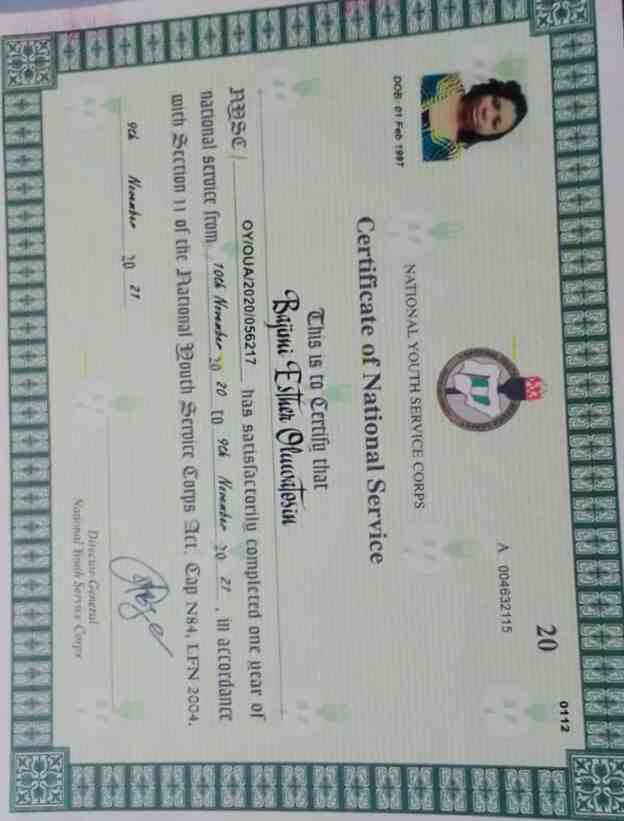 0112
20
A 004632115
DOB: 01 Feb 1997
NATIONAL YOUTH SERVICE CORPS
Certificate of National Service
This is to Certify that
Bajomi Esther Oluwatosin
NYSC/ OY/OUA/2020/056217 has satisfactorily completed one year of
national service from 10th November 20 20 to 9th November 20 21, in accordance
with Section 11 of the National Youth Service Corps Act, Cap N84, LFN 2004.
9th November 20 21
Director-General
National Youth Service Corps